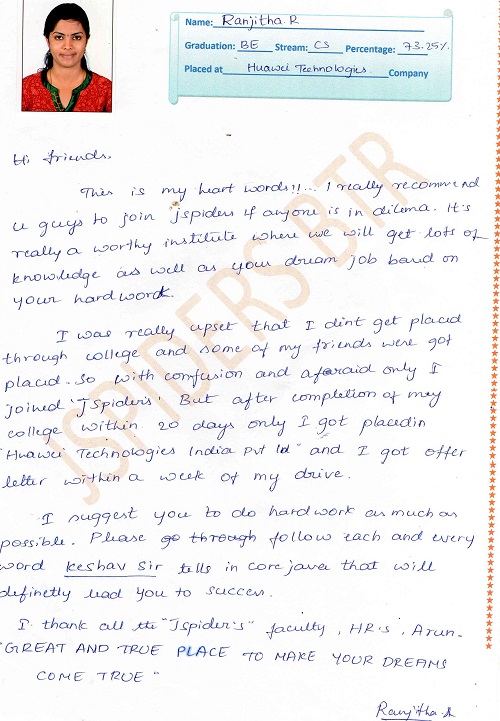 Name: Ranjitha.R
Graduation: BE Stream: CS Percentage: 73.25%
Placed at Huawei Technologies Company
JSPIDERS BTR
Hi friends,
This is my heart words!!... I really recommend
u guys to join Jspiders if anyone is in dilema. It's
really a worthy institute where we will get lots of
knowledge as well as your dream job based on
your hardwork.
I was really upset that I dint get placed
through college and some of my friends were got
placed. So with comfusion and afaraid only I
joined 'JSpiders'. But after completion of my
college within 20 days only I got placedin
"Huawei Technologies India Pvt ltd" and I got offer
letter within a week of my drive.
I suggest you to do hardwork as much as
possible. Please go through follow each and every
word Keshav Sir tells in core java that will
definetly lead you to success.
I thank all the "Jspider's" faculty, HR's, Arun.
"GREAT AND TRUE PLACE TO MAKE YOUR DREAMS
COME TRUE"
Ranjitha.R